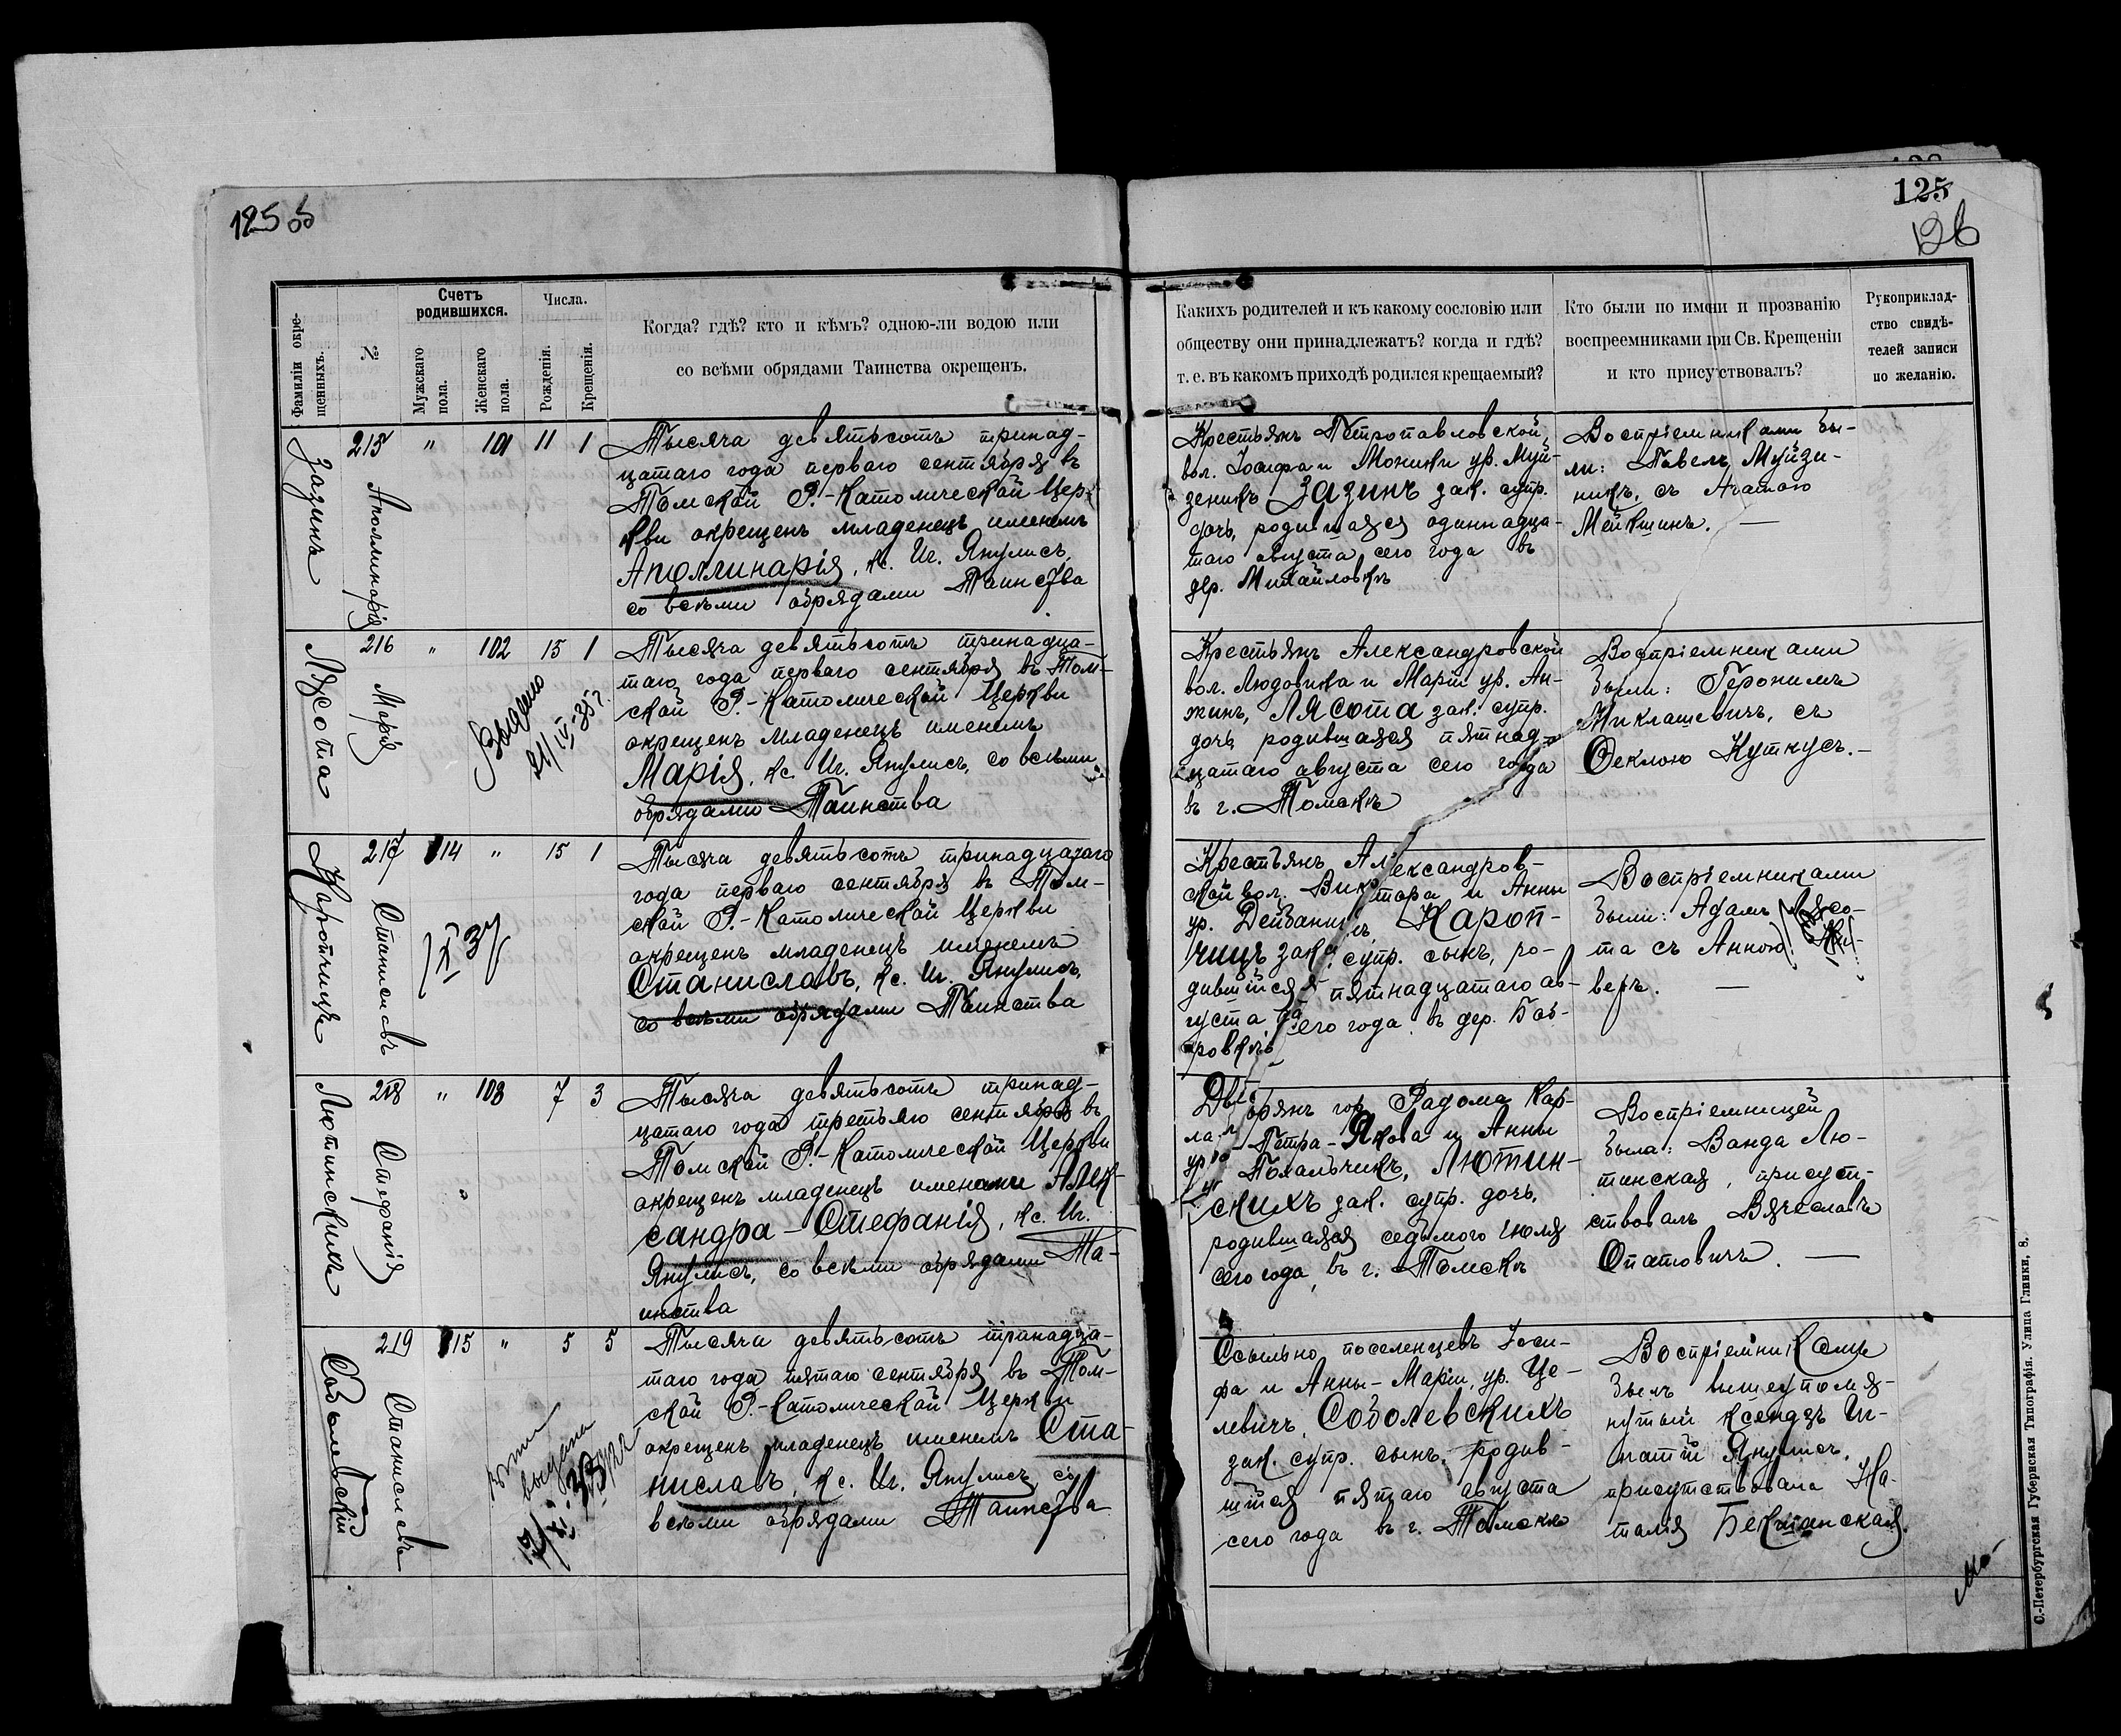 125 об
125
126
Фамиліи окре-
щенныхъ.
№
Счетъ
родившихся.
Мужскаго
пола.
Женскаго
пола.
Числа.
Рожденія.
Крещенія.
Когда? гдѣ? кто и кѣмъ? одною-ли водою или
со всѣми обрядами Таинства окрещенъ.
Какихъ родителей и къ какому сословію или
обществу они принадлежатъ? когда и гдѣ?
т. е. въ какомъ приходѣ родился крещаемый?
Кто были по имени и прозванію
воспреемниками при Св. Крещеніи
и кто присутствовалъ?
Рукоприклад-
ство свидѣ-
телей записи
по желанію.
Зазинъ
215
Аполлинарія
" 101 11 1
Тысяча девятьсотъ принад-
цатаго года перваго сентября въ
Томской Р.-Католической Цер-
кви окрещенъ младенецъ именемъ
Аполлинарія, кс. Иг. Янулисъ,
со всѣми обрядами Таинства
Крестьянъ Петропавловской
вол. Іосифа и Моники ур. Муй-
зеникъ Зазинъ зак. супр.
дочь, родившаяся одиннадца-
таго августа сего года въ
дер. Михайловкѣ
Воспріемниками бы-
ли: Павелъ Муйзи-
никъ, съ Агатою
Мейкшинъ. —
Лясота
216
Марія
" 102 15 1
Выдано
21/IV-35 г.
Тысяча девятьсотъ тринадца-
таго года перваго сентября въ Том-
ской Р.-Католической Церкви
окрещенъ младенецъ именемъ
Марія, кс. Иг. Янулисъ, со всѣми
обрядами Таинства
Крестьянъ Александровской
вол. Людовика и Маріи ур. Ан-
жинъ, Лясота зак. супр.
дочь родившаяся пятнад-
цатаго августа сего года
въ г. Томскѣ
Воспріемниками
были: Геронимъ
Миклашевичъ, съ
Ѳеклою Куткусъ. —
Каропчицъ
217
Станиславъ
114 " 15 1
Тысяча девятьсотъ принадцатаго
года перваго сентября въ Том-
ской Р.-Католической Церкви
окрещенъ младенецъ именемъ
Станиславъ, кс. Иг. Янулисъ,
со всѣми обрядами Таинства
Крестьянъ Александров-
ской вол. Виктора и Анны
ур. Дейбанъ, Кароп-
чицъ зак. супр. сынъ, ро-
дившійся пятнадцатаго ав-
густа сего года въ дер. Боб-
ровкѣ
Воспріемниками
были: Адамъ Лясо-
та съ Анною
веръ. —
Лютинскихъ
218
Стефанія
" 103 7 3
Тысяча девятьсотъ принад-
цатаго года третьяго сентября въ
Томской Р.-Католической Церкви
окрещенъ младенецъ именами Алек-
сандра-Стефанія, кс. Иг.
Янулисъ, со всѣми обрядами Та-
инства
Дворянъ гор. Радома Кар-
ла - Петра-Якова и Анны
ур. Ковальчикъ, Лютин-
скихъ зак. супр. дочь,
родившаяся седьмого іюля
сего года, въ г. Томскѣ
Воспріемницей
была: Ванда Лю-
тинская, присут-
ствовалъ Вячеславъ
Опатовичъ. —
Соболевскій
219
Станиславъ
115 " 5 5
выдана
Тысяча девятьсотъ тринадца-
таго года пятаго сентября въ Том-
ской Р.-Католической Церкви
окрещенъ младенецъ именемъ Ста-
ниславъ, кс. Иг. Янулисъ, со
всѣми обрядами Таинства
Ссыльно поселенцевъ Іоси-
фа и Анны-Маріи, ур. Це-
левичъ, Соболевскихъ
зак. супр. сынъ, родив-
шійся пятаго августа
сего года въ г. Томскѣ
Воспріемникомъ
былъ вышеупомя-
нутый ксендзъ Иг-
натій Янулисъ,
присутствовала На-
талія Бекшанская.
С.-Петербургская Губернская Типографія. Улица Глинки, 8.